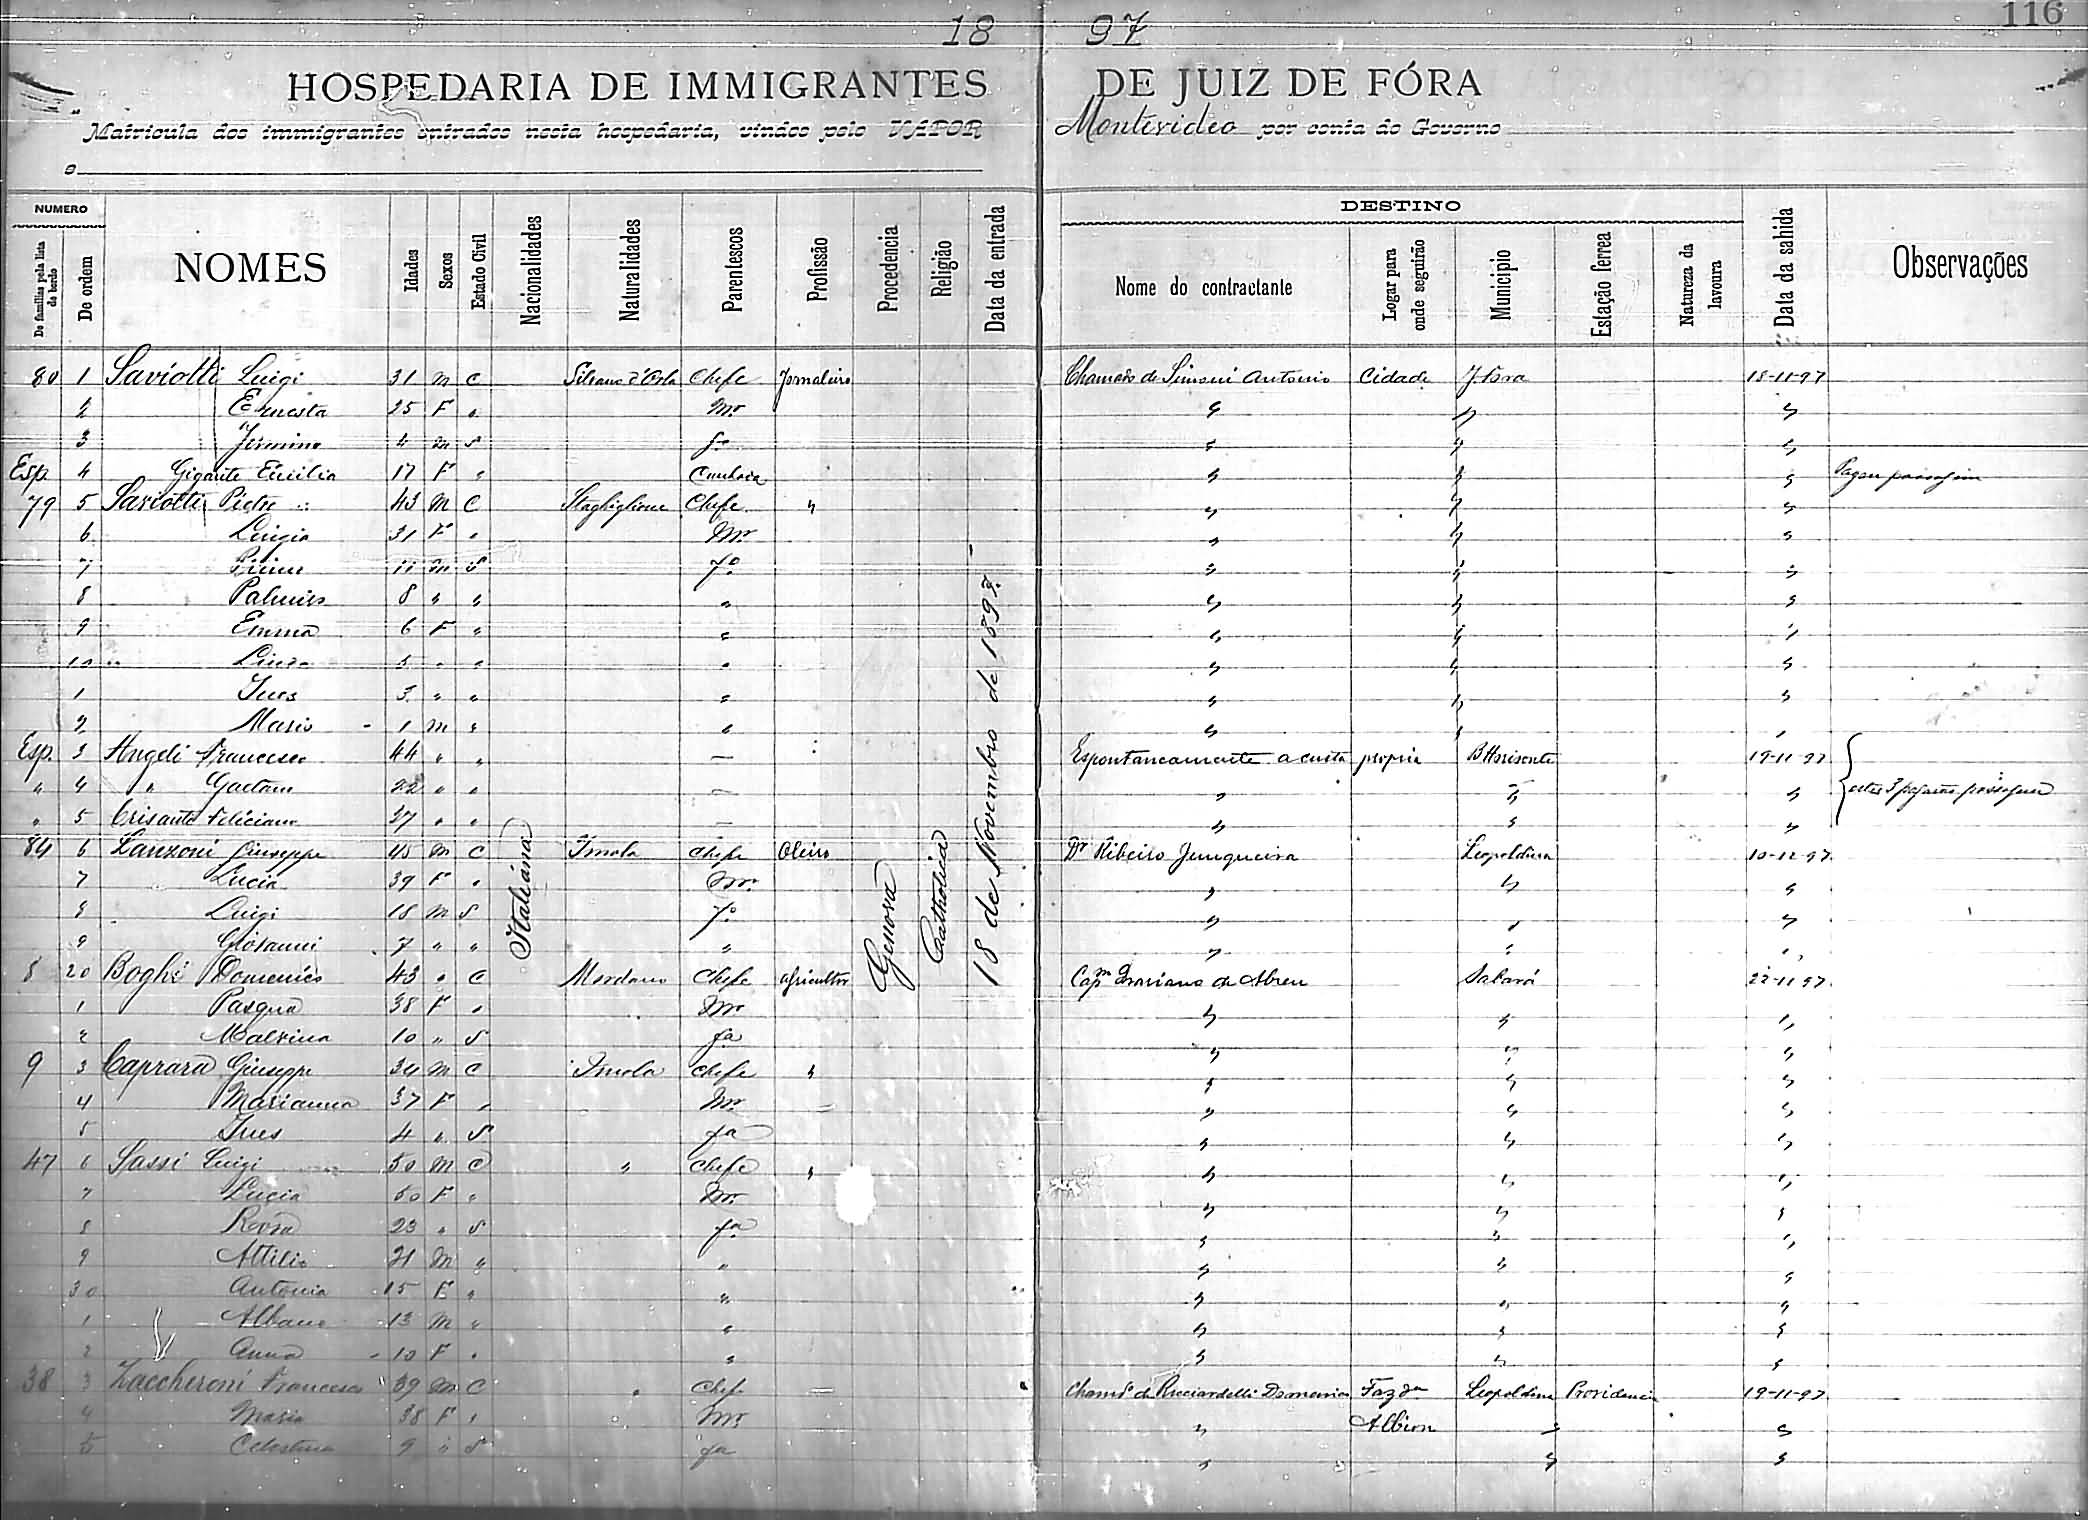 116
18 97
HOSPEDARIA DE IMMIGRANTES DE JUIZ DE FÓRA
Matricula dos immigrantes entrados nesta hospedaria, vindos pelo VAPOR Montevideo por conta do Governo
o
NUMERO
De familias pela lista de bordo
De ordem
NOMES
Idades
Sexos
Estado Civil
Nacionalidades
Naturalidades
Parentescos
Profissão
Procedencia
Religião
Data da entrada
DESTINO
Nome do contractante
Logar para onde seguirão
Municipio
Estação ferrea
Natureza da lavoura
Data da sahida
Observações
Italiána
Genova
Catholica
18 de Novembro de 1897.
80 1 Saviotti Luigi 31 m C Silvano d'Orba Chefe Jornaleiro Chamado de Simoni Antonio Cidade J. Fóra 18-11-97
2 Ernesta 25 F " Mr " " "
3 Fermino 4 m S fo " " "
Esp. 4 Gigante Emilia 17 F " Cunhada " " " Pagou passagem
79 5 Saviotti Pietro 43 m C Chefe " " " "
6 Luigia 31 F " Mr " " "
7 11 m S fo " " "
8 8 " " " " " "
9 Emma 6 F " " " " "
10 5 " " " " " "
1 Ines 3 " " " " " "
2 Mario 1 m " " " " "
Esp. 3 Angeli Francesco 44 " " — Espontaneamente a custa propria B Horisonte 19-11-97
" 4 " Gaetano 22 " " — " " " estes 3 pagarão passagem
" 5 Crisante Feliciano 37 " " — " " "
84 6 Zanzoni Giuseppe 45 m C Imola Chefe Oleiro Dr Ribeiro Junqueira Leopoldina 10-12-97
7 Lucia 39 F " Mr " " "
8 Luigi 18 m S fo " " "
9 Giovanni 7 " " " " " "
8 20 Boghi Domenico 43 " C Mordano Chefe agricultor Capm de Abreu Sabará 22-11-97
1 Pasqua 38 F " Mr " " "
2 Malvina 10 " S fa " " "
9 3 Caprara Giuseppe 34 m C Imola Chefe " " " "
4 Marianna 37 F " Mr " " "
5 Ines 4 " S fa " " "
47 6 Sassi Luigi 50 m C " Chefe " " " "
7 Lucia 50 F " Mr " " "
8 23 " S fa " " "
9 Attilio 21 m " " " " "
30 Antonia 15 F " " " " "
1 Albano 13 m " " " " "
2 Anna 10 F " " " " "
38 3 Zaccheroni Francesco 39 m C " Chefe — Chamdo de Ricciardelli Domenico Fazda Leopoldina Providencia 19-11-97
4 Maria 38 F " Mr " Albion " "
5 Celestina 9 " S fa " " "